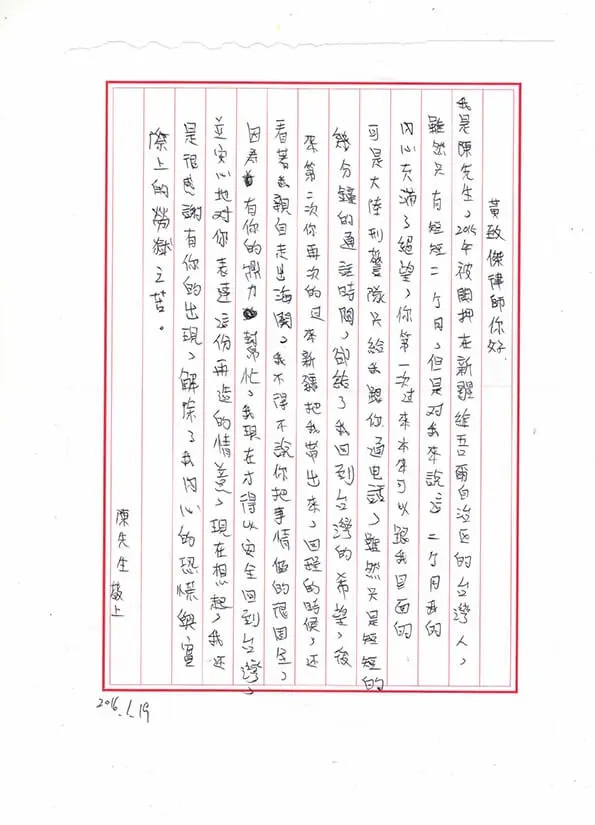 黃致傑律師你好
我是陳先生，2015年被關押在新疆維吾爾自治区的台灣人，
雖然只有短短二个月，但是对我來說這二个月我的
內心充滿了絕望，你第一次过來本來可以跟我里面的
可是大陸刑警隊只給我跟你通电話，雖然只是短短的
幾分鐘的通話時間，卻給了我回到台灣的希望，後
來第二次你再次的过來新疆把我帶出來，回程的時候，还
看著我親自走出海關，我不得不說你把事情做的很周全，
因為有你的鼎力幫忙，我現在才得以安全回到台灣，
並实心地对你表達這份再造的情義，現在想起，我还
是很感謝有你的出現，解除了我內心的恐慌與實
際上的勞獄之苦。
陳先生 敬上
2016.1.19